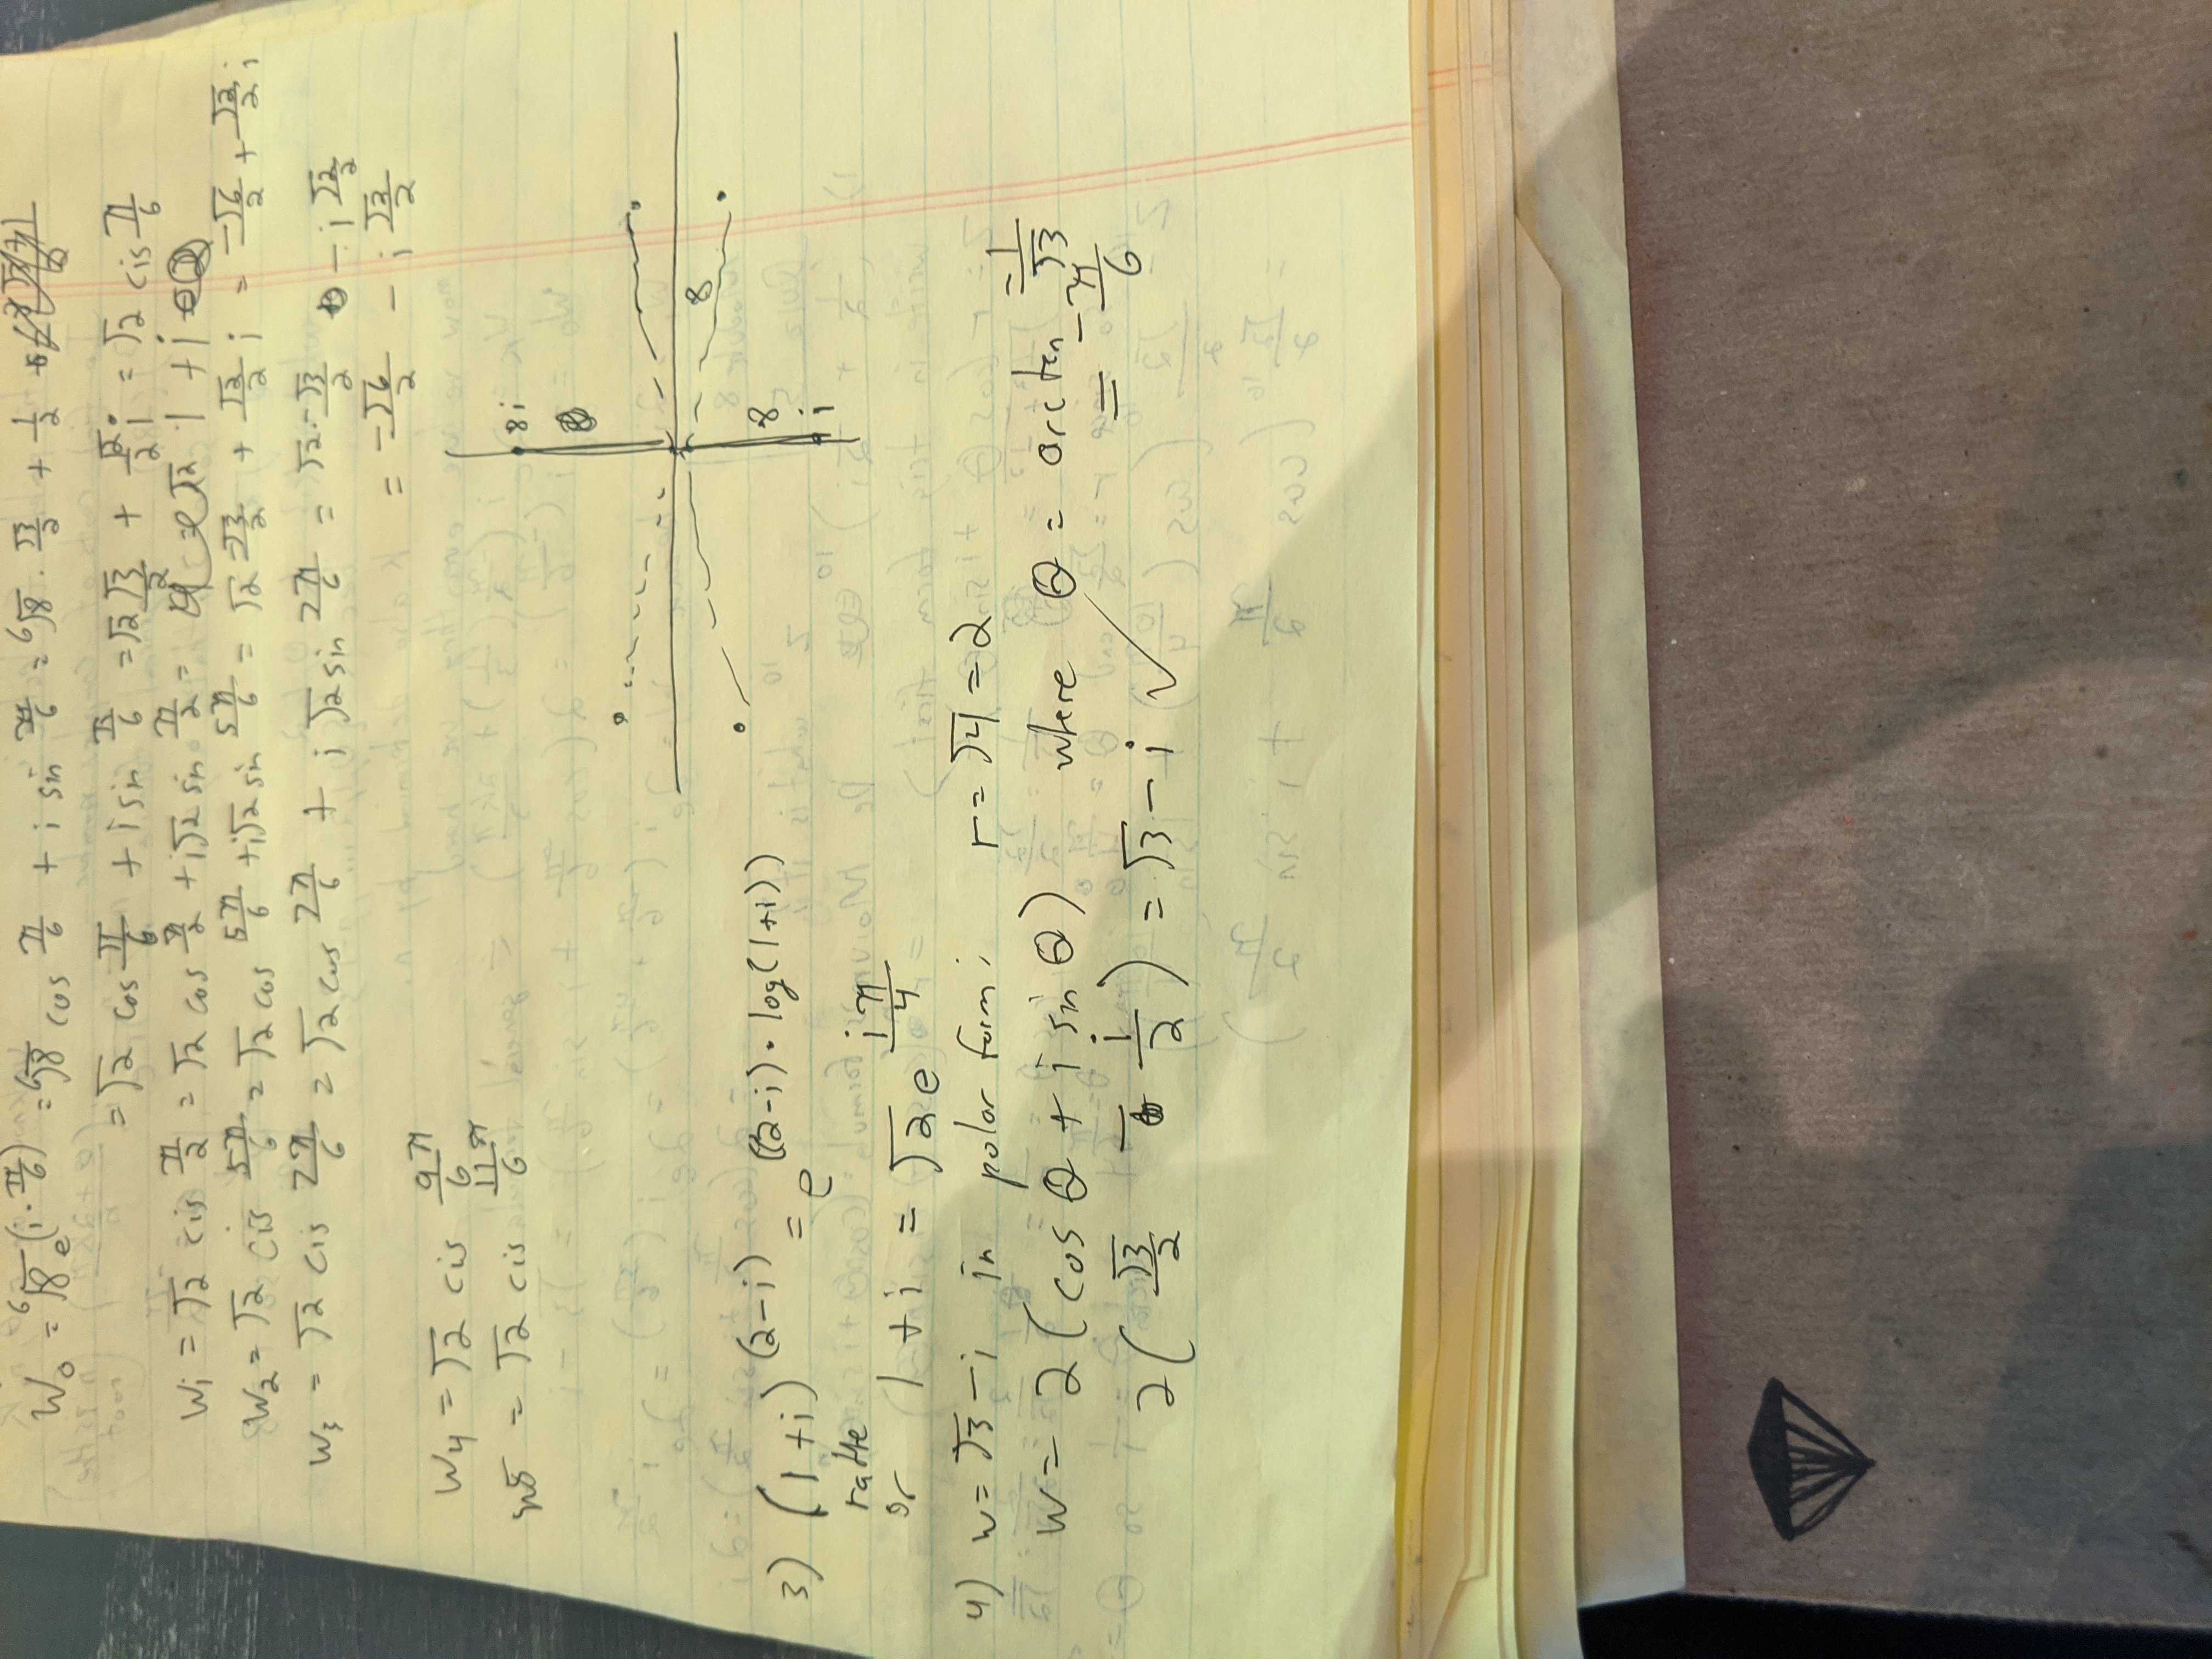 W₀ = ⁶√8 e^(i·π/6) = ⁶√8 cos π/6 + i sin π/6 = ⁶√8 · √3/2 + 1/2
= √2 cos π/6 + i sin π/6 = √2 √3/2 + √2/2 i = √2 cis π/6
W₁ = √2 cis π/2 = √2 cos π/2 + i√2 sin π/2 = √2 · 1 + i
W₂ = √2 cis 5π/6 = √2 cos 5π/6 + i√2 sin 5π/6 = √2 -√3/2 + √2/2 i = -√6/2 + √2/2 i
W₃ = √2 cis 7π/6 = √2 cos 7π/6 + i √2 sin 7π/6 = √2·-√3/2 - i √2/2
= -√6/2 - i √2/2
W₄ = √2 cis 9π/6
w5 = √2 cis 11π/6
8i
8
8
i
3) (1+i)^(2-i) = e^((2-i)·log(1+i))
or 1+i = √2 e^(iπ/4)
4) w = √3 - i in polar form; r = √4 = 2
W = 2(cos θ + i sin θ) where θ = arctan -1/√3
= -π/6
2(√3/2 - i/2) = √3 - i ✓